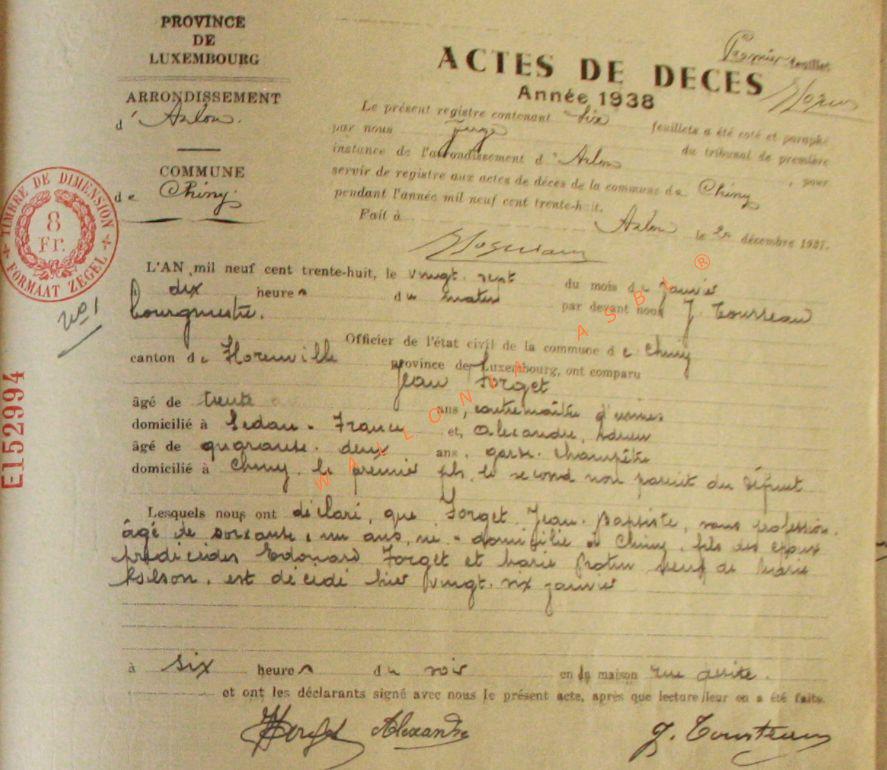 PROVINCE
DE
LUXEMBOURG
ARRONDISSEMENT
d' Arlon.
COMMUNE
de Chiny.
TIMBRE DE DIMENSION
8
Fr.
FORMAAT ZEGEL
No 1
E152994
Premier feuillet
ACTES DE DECES
Année 1938
Le présent registre contenant six feuillets a été coté et paraphé
par nous Juge du tribunal de première
instance de l'arrondissement d' Arlon, pour
servir de registre aux actes de décès de la commune de Chiny
pendant l'année mil neuf cent trente-huit.
Fait à Arlon le décembre 1937.
L'AN mil neuf cent trente-huit, le vingt. sept du mois de janvier
dix heures du matin par devant nous J. Tousseau
bourgmestre.
Officier de l'état civil de la commune de Chiny
canton de Florenville province de Luxembourg, ont comparu
Jean Forget
âgé de trente ans, contremaître d'usines
domicilié à Sedan - France et, Alexandre, Adrien
âgé de quarante. deux ans, garde. champêtre
domicilié à Chiny. le premier fils, le second non parent du défunt
Lesquels nous ont déclaré, que Forget, Jean. Baptiste, sans profession.
âgé de soixante, un ans, né - domicilié à Chiny, fils des époux
prédécédés Edouard Forget et Marie Protin veuf de Marie
est décédé hier vingt. six janvier
à six heures du soir en sa maison rue
et ont les déclarants signé avec nous le présent acte, après que lecture leur en a été faite.
Forget Alexandre
WALLONIA ASBL ®